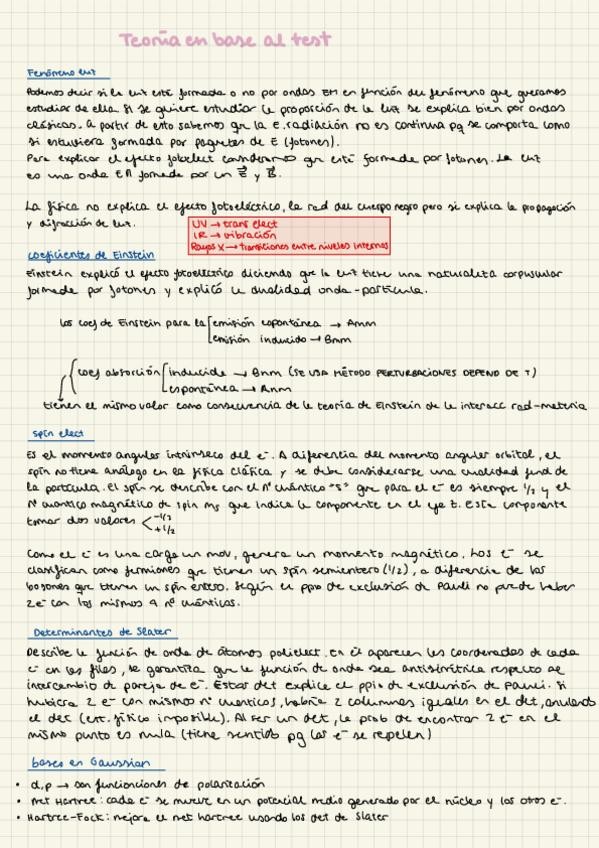 Teoría en base al test
Fenómeno luz
Podemos decir si la luz esté formada o no por ondas EM en función del fenómeno que queramos
estudiar de ella. Si se quiere estudiar la proporción de la luz se explica bien por ondas
clásicas. A partir de esto sabemos qu la E.radiación no es continua pq se comporta como
si estuviera formada por paquetes de E (fotones).
Para explicar el efecto fotoeléct consideramos que esté formada por fotones. La luz
es una onda EM formada por un E y B.
La física no explica el efecto fotoeléctrico, la rad del cuerpo negro pero si explica la propagación
y difracción de luz.
UV → trans elect
IR → vibración
Rayos X → transiciones entre niveles internos
Coeficientes de Einstein
Einstein explicó el efecto fotoeléctrico diciendo que la luz tiene una naturaleza corpuscular
formada por fotones y explicó la dualidad onda-partícula.
los coef de Einstein para la emisión espontánea → Amm
emisión inducida → Bnm
coef absorción inducida → Bnm (SE USA MÉTODO PERTURBACIONES DEPEND DE T)
espontánea → Anm
tienen el mismo valor como consecuencia de la teoría de Einstein de la interacc rad-materia
Spin elect
Es el momento angular intrínseco del e-. A diferencia del momento angular orbital, el
spin no tiene análogo en la física clásica y se debe considerarse una cualidad fund de
la partícula. El spin se describe con el nº cuántico "s" que para el e- es siempre 1/2 y el
nº cuántico magnético de spin ms que indica la componente en el eje z. Esta componente
tomar dos valores -1/2
+1/2
Como el e- es una carga en mov, genera un momento magnético. Los e- se
clasifican como fermiones que tienen un spin semientero (1/2), a diferencia de los
bosones que tienen un spin entero. Según el ppio de exclusión de Pauli no puede haber
2 e- con los mismos 4 nº cuánticos.
Determinantes de Slater
Describe la función de onda de átomos polielect. En él aparecen las coordenadas de cada
e- en las filas, se garantiza que la función de onda sea antisimétrica respecto al
intercambio de pareja de e-. Estos det explica el ppio de exclusión de Pauli. Si
hubiera 2 e- con mismos nº cuánticos, habría 2 columnas iguales en el det, anulando
el det (ent. físico imposible). Al ser un det, la prob de encontrar 2 e- en el
mismo punto es nula (tiene sentido pq los e- se repelen)
bases en Gaussian
• d,p → son funciones de polarización
• met Hartree: cada e- se mueve en un potencial medio generado por el núcleo y los otros e-.
• Hartree-Fock: mejora el met hartree usando los det de Slater